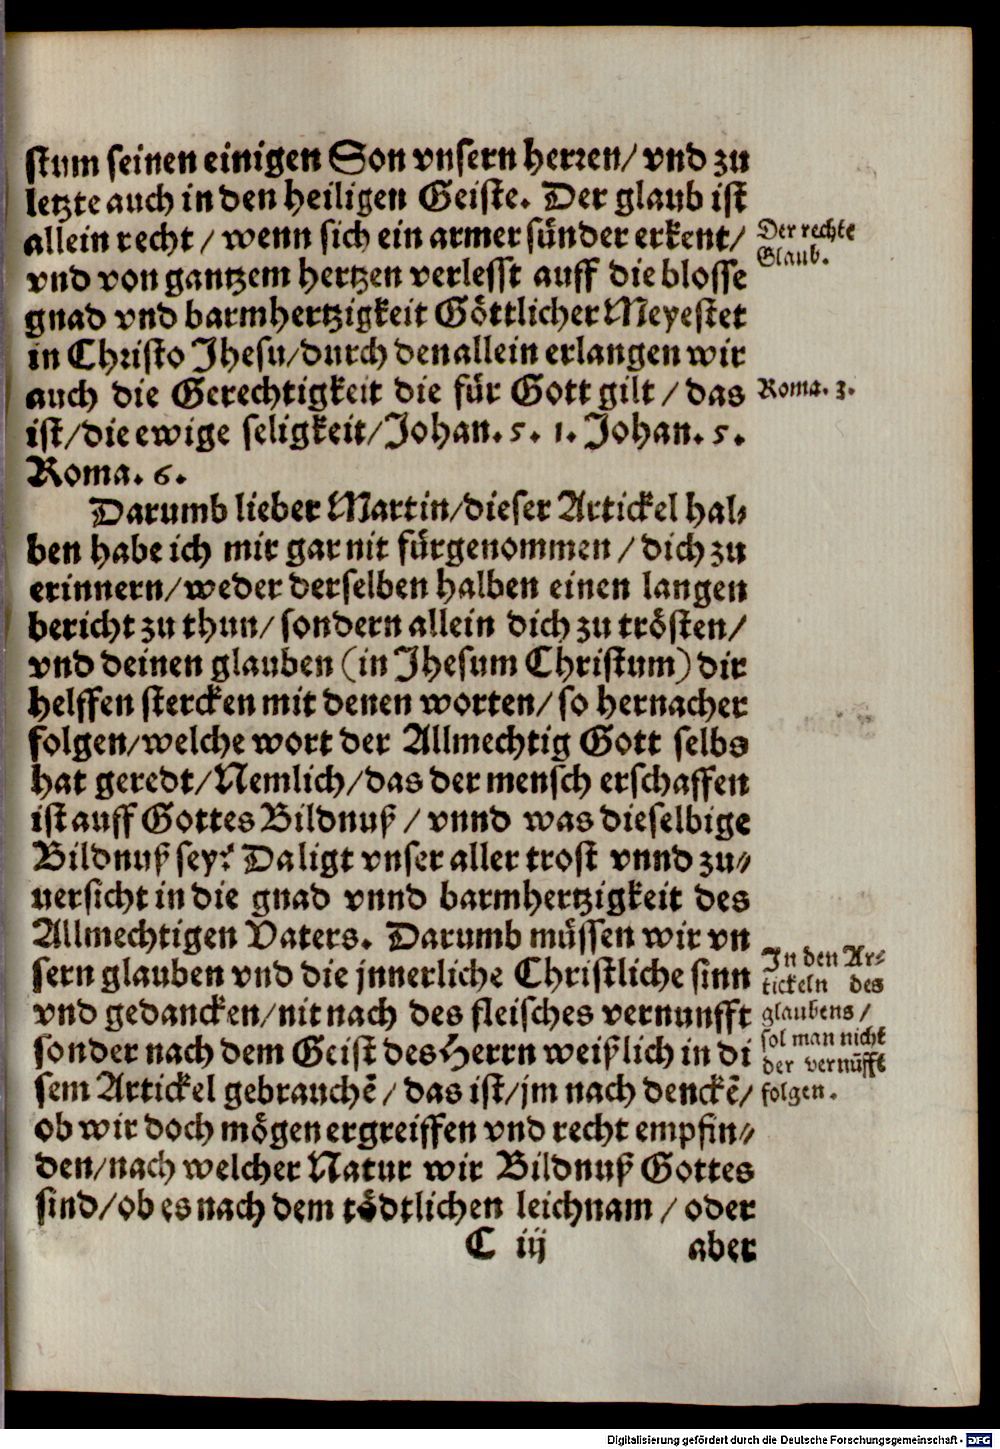 stum seinen einigen Son vnsern herren/ vnd zu
letzte auch in den heiligen Geiste. Der glaub ist
allein recht / wenn sich ein armer sünder erkent/
vnd von gantzem hertzen verlesst auff die blosse
gnad vnd barmhertzigkeit Göttlicher Meyestet
in Christo Jhesu/durch den allein erlangen wir
auch die Gerechtigkeit die für Gott gilt / das
ist/die ewige seligkeit/Johan. 5. 1. Johan. 5.
Roma. 6.
Darumb lieber Martin/dieser Artickel hal-
ben habe ich mir gar nit fürgenommen / dich zu
erinnern/weder derselben halben einen langen
bericht zu thun/ sondern allein dich zu trösten/
vnd deinen glauben (in Jhesum Christum) dir
helffen stercken mit denen worten/ so hernacher
folgen/welche wort der Allmechtig Gott selbs
hat geredt/Nemlich/das der mensch erschaffen
ist auff Gottes Bildnuß / vnnd was dieselbige
Bildnuß sey? Da ligt vnser aller trost vnnd zu-
uersicht in die gnad vnnd barmhertzigkeit des
Allmechtigen Vaters. Darumb müssen wir vn
sern glauben vnd die jnnerliche Christliche sinn
vnd gedancken/nit nach des fleisches vernunfft
sonder nach dem Geist des Herrn weißlich in di
sem Artickel gebrauchē / das ist/jm nach denckē/
ob wir doch mögen ergreiffen vnd recht empfin-
den/nach welcher Natur wir Bildnuß Gottes
sind/ob es nach dem tödtlichen leichnam / oder
C iij aber
Der rechte
Glaub.
Roma. 3.
In den Ar-
tickeln des
glaubens /
sol man nicht
der vernūfft
folgen.
Digitalisierung gefördert durch die Deutsche Forschungsgemeinschaft - DFG